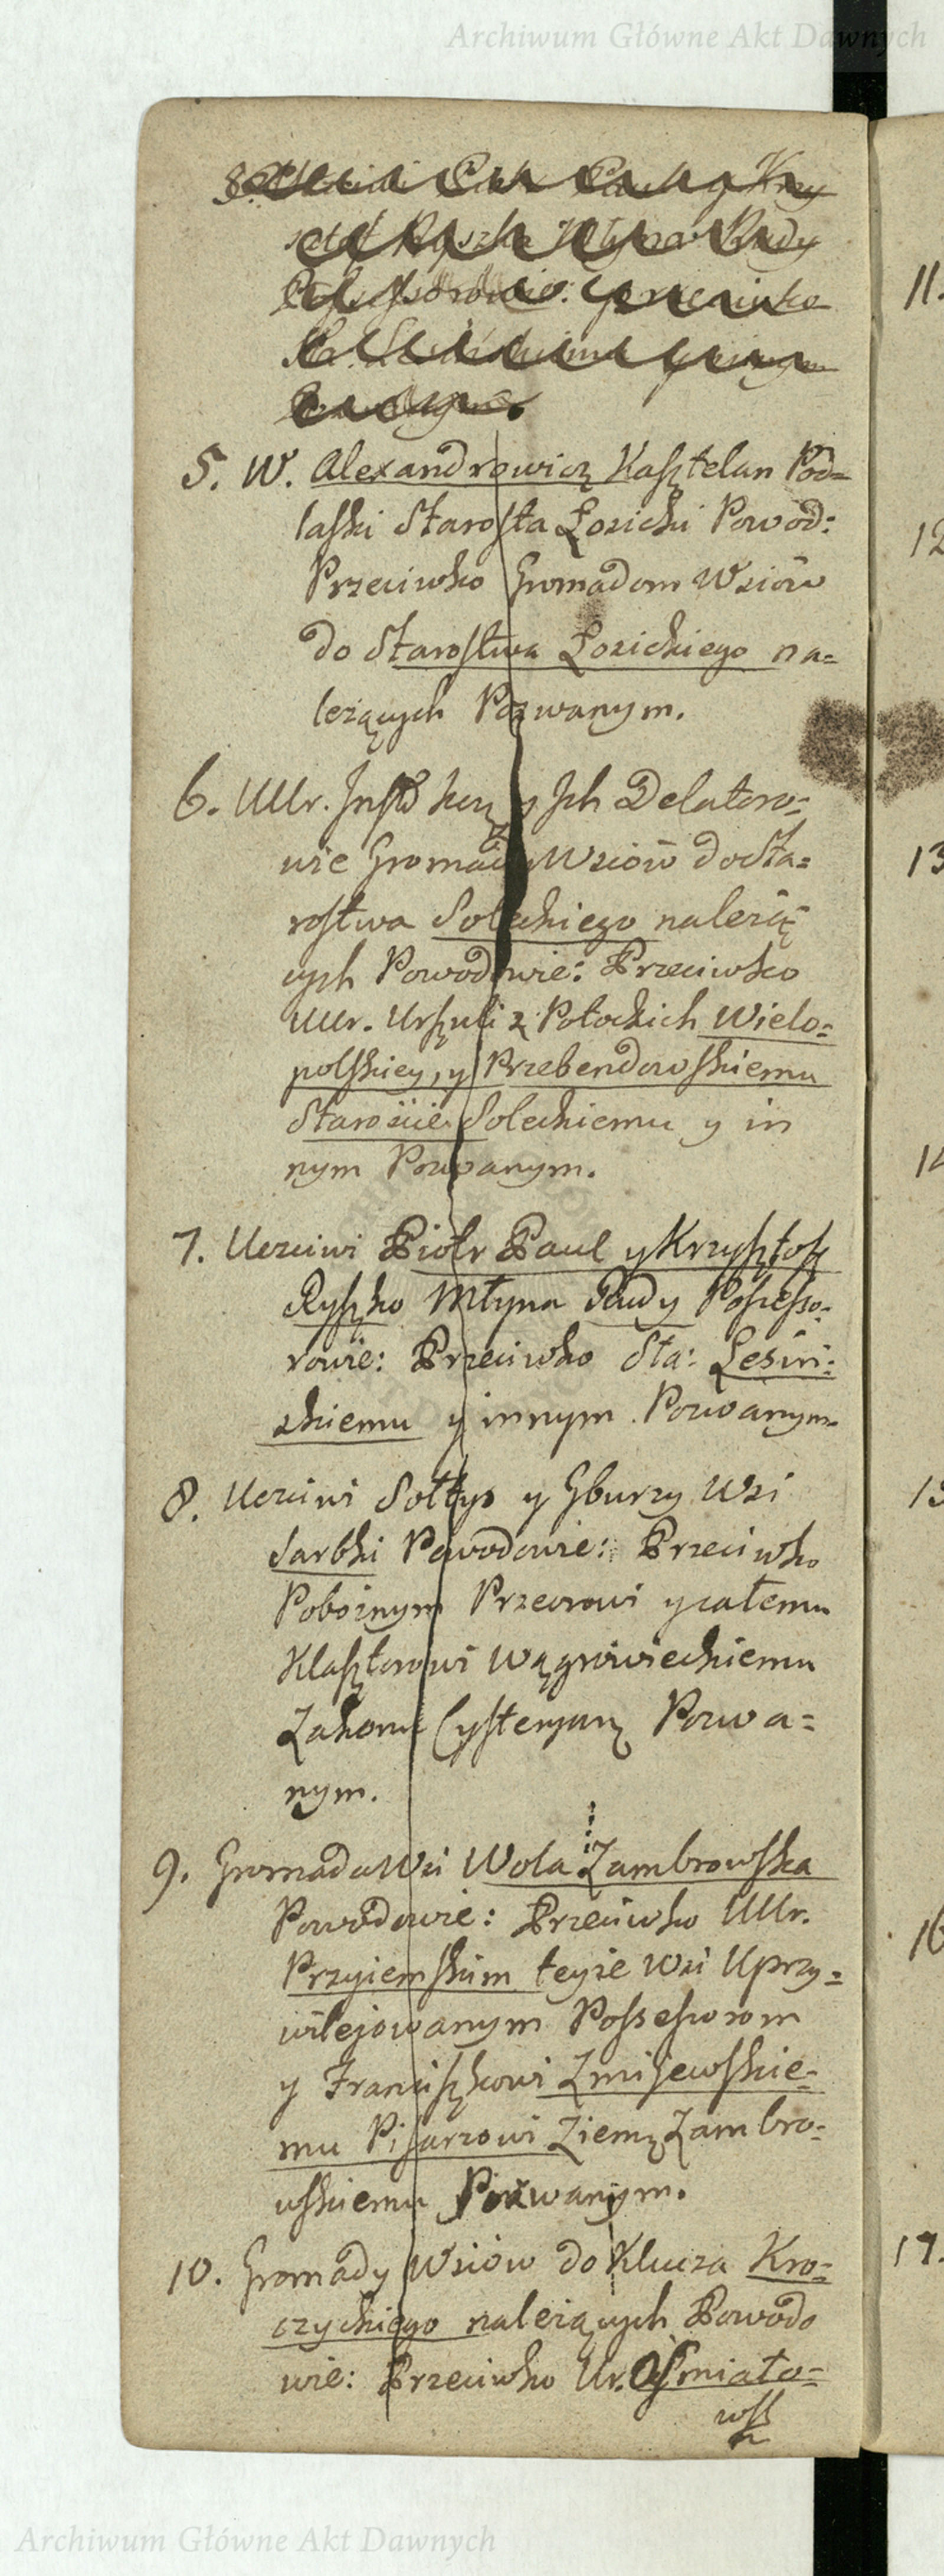 Archiwum Główne Akt Dawnych
y Krzy
Ryszko Młyna Rudy
Possessorowie: Przeciwko
11.
5. W. Alexandrowicz Kasztelan Pod=
laski Starosta Łosicki Powod:
12
Przeciwko Gromadom Wsiów
do Starostwa Łosickiego na=
leżących Pozwanym.
6. UUr. Inst: kor: y Ich Delatoro=
wie Gromady Wsiów do Sta=
13
rostwa Soleckiego należą
cych Powodowie: Przeciwko
UUr. Urszuli z Potockich Wielo=
polskiey, y Przebendowskiemu
Starościie Soleckiemu y in
nym Pozwanym.
14
7. Uczciwi Piotr Paul y Krzysztof
Ryszko Młyna Rudy Possesso=
rowie: Przeciwko Sta: Lesin=
skiemu y innym Pozwanym
8. Uczciwi Sołtys y Gburzy Wsi
Sarbki Powodowie: Przeciwko
Pobożnym Przeorowi y całemu
Klasztorowi Wągrowieckiemu
Zakonu Cystersów Pozwa=
nym.
9. Gromada Wsi Wola Zambrowska
Powodowie: Przeciwko UUr.
16
Przyiemskim teyże Wsi Uprzy=
wilejowanym Possessorom
y Franciszkowi Zmijewskie=
mu Pisarzowi Ziem: Zambro=
wskiemu Pozwanym.
10. Gromady Wsiów do Klucza Kro=
17.
czyckiego należących Powodo
wie: Przeciwko Ur. Ośmiało=
wsk
Archiwum Główne Akt Dawnych